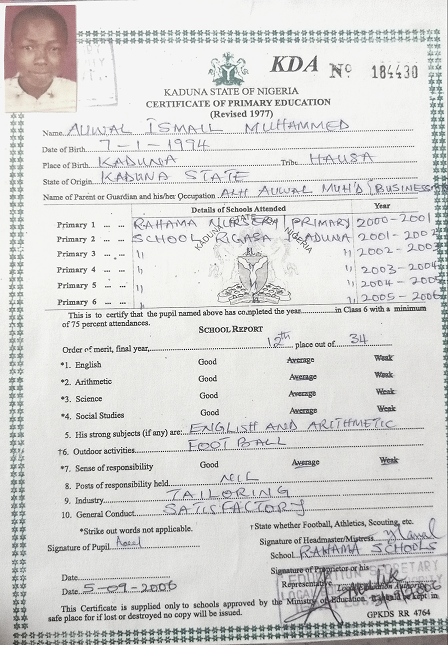 KDA No 184430
KADUNA STATE OF NIGERIA
CERTIFICATE OF PRIMARY EDUCATION
(Revised 1977)
Name AUWAL ISMAIL MUHAMMED
Date of Birth 7-1-1994
Place of Birth KADUNA Tribe HAUSA
State of Origin KADUNA STATE
Name of Parent or Guardian and his/her Occupation ALH AUWAL MUH'D (BUSINESS
Details of Schools Attended Year
Primary 1 ... ... RAHAMA NURSERY / PRIMARY 2000-2001
Primary 2 ... ... SCHOOL RIGASA KADUNA 2001-2002
Primary 3 ... ... " " 2002-2003
Primary 4 ... ... " " 2003-2004
Primary 5 ... ... " " 2004-2005
Primary 6 ... ... " " 2005-2006
KADUNA STATE NIGERIA
This is to certify that the pupil named above has completed the year in Class 6 with a minimum
of 75 percent attendances.
SCHOOL REPORT
Order of merit, final year, 12th place out of 34
*1. English Good Average Weak
*2. Arithmetic Good Average Weak
*3. Science Good Average Weak
*4. Social Studies Good Average Weak
5. His strong subjects (if any) are: ENGLISH AND ARITHMETIC
†6. Outdoor activities FOOT BALL
*7. Sense of responsibility Good Average Weak
8. Posts of responsibility held NIL
9. Industry TAILORING
10. General Conduct SATISFACTORY
*Strike out words not applicable. †State whether Football, Athletics, Scouting, etc.
Signature of Pupil Signature of Headmaster/Mistress
School RAHAMA SCHOOLS
Signature of Proprietor or his
Date Representative
Date 5-09-2006
This Certificate is supplied only to schools approved by the Ministry of Education. It should be kept in
safe place for if lost or destroyed no copy will be issued. GPKDS RR 4764